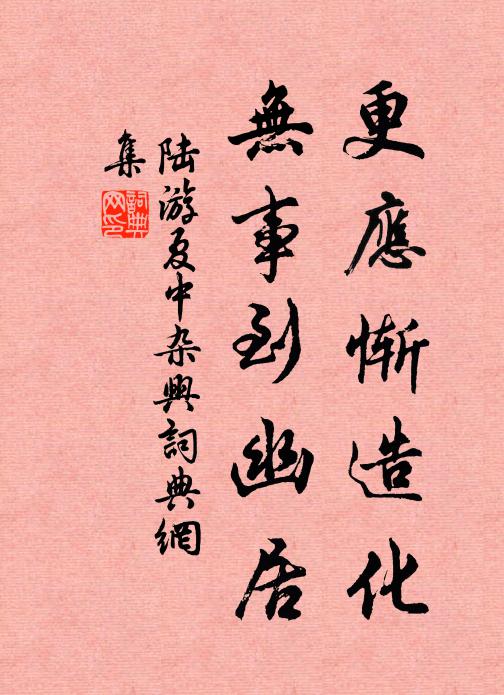 更應慚造化
無事到幽居
陆游夏中杂興詞典網
集
詞典
网印